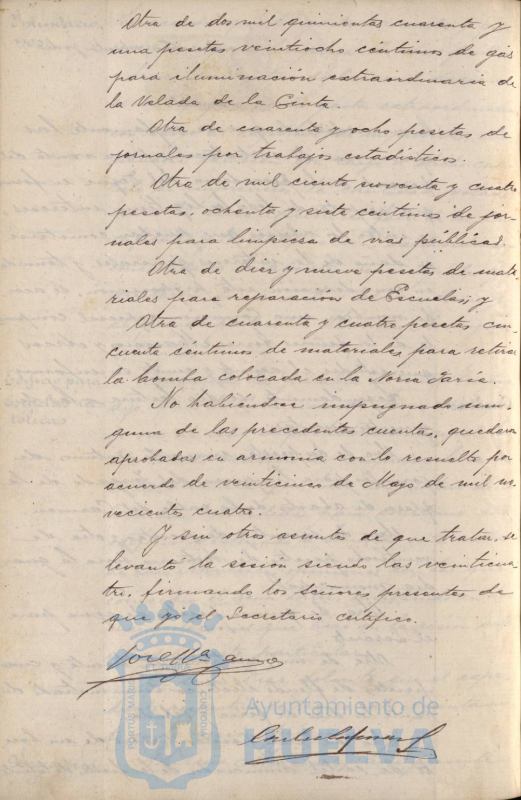 Otra de dos mil quinientas cuarenta y
una pesetas veintiocho céntimos de gas
para iluminación extraordinaria de
la Velada de la Cinta.
Otra de cuarenta y ocho pesetas de
jornales por trabajos estadísticos.
Otra de mil ciento noventa y cuatro
pesetas, ochenta y siete céntimos de jor-
nales para limpieza de vías públicas.
Otra de diez y nueve pesetas de mate-
riales para reparación de Escuelas; y
Otra de cuarenta y cuatro pesetas cin-
cuenta céntimos de materiales para retirar
la bomba colocada en la Noria
No habiéndose impugnado nin-
guna de las precedentes cuentas, quedaron
aprobadas en armonía con lo resuelto por
acuerdo de veinticinco de Mayo de mil no-
vecientos cuatro.
Y sin otros asuntos de que tratar, se
levantó la sesión siendo las veinticua-
tro, firmando los Señores presentes de
que yo el Secretario certifico.
José Mª
PORTUS MARIS
Ayuntamiento de
HUELVA